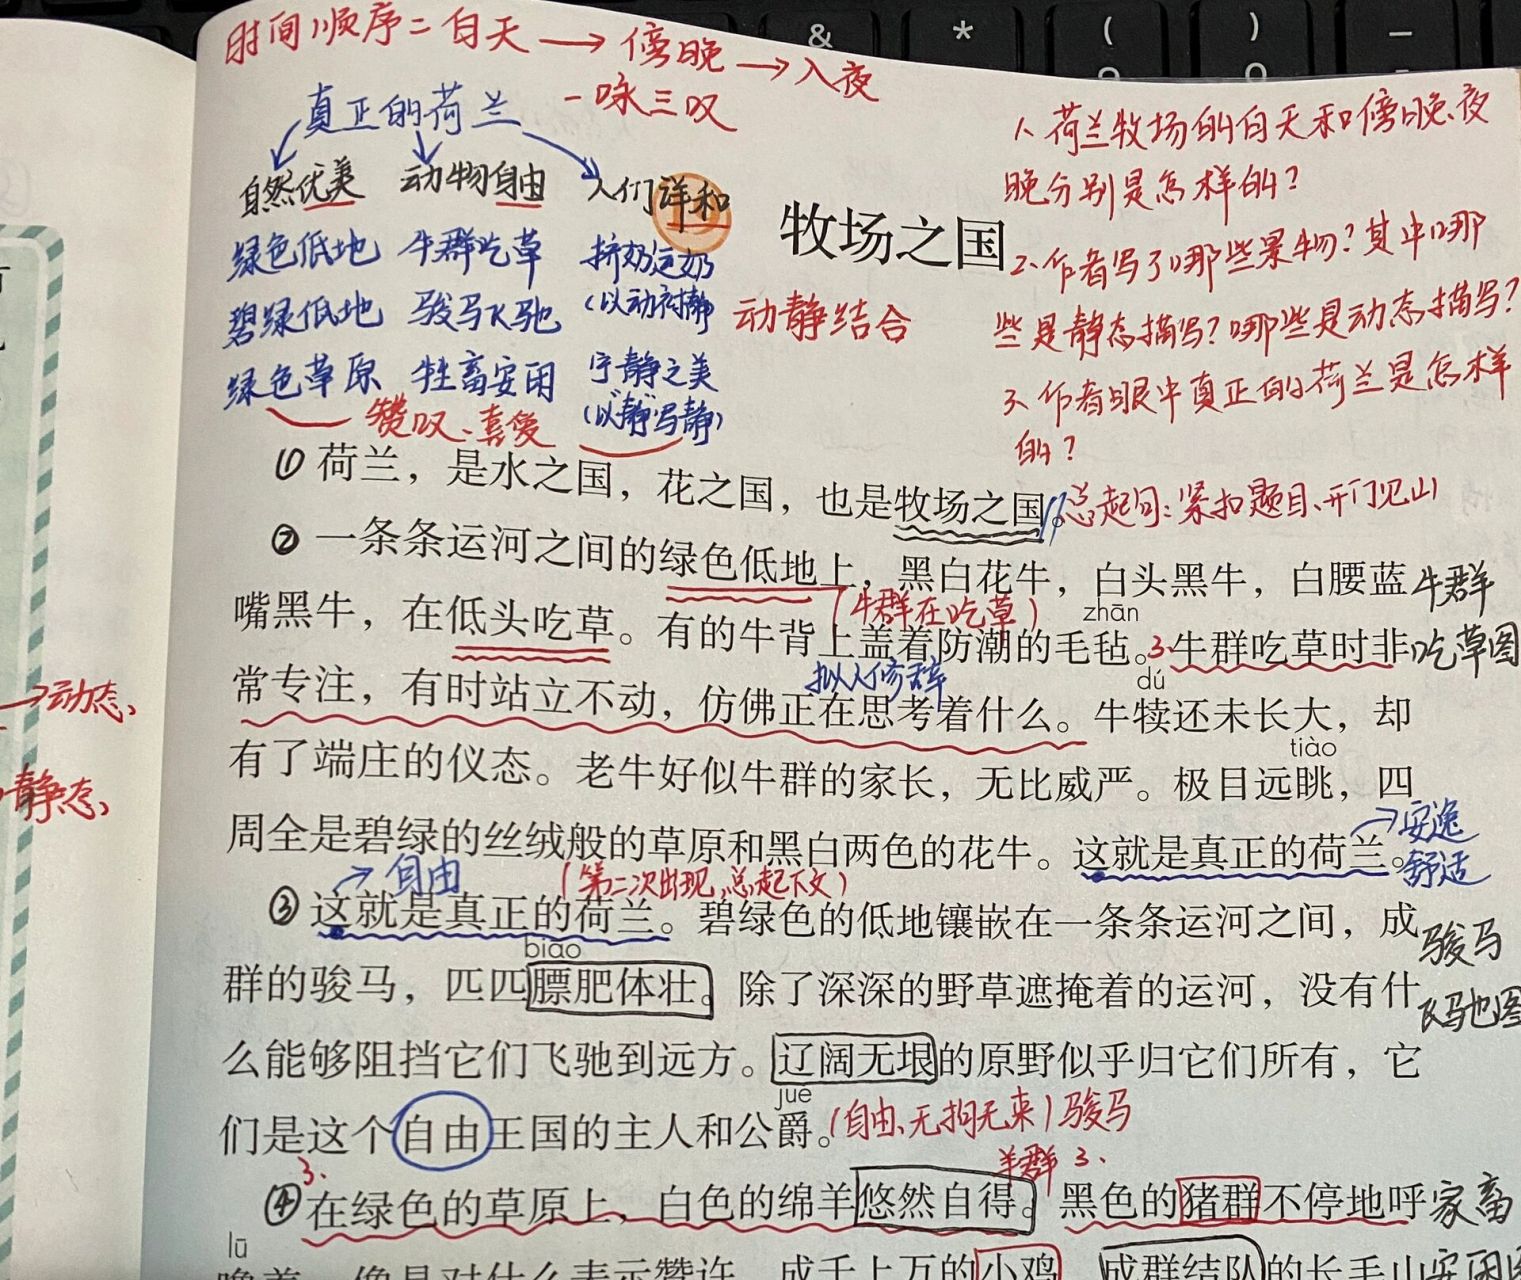 时间顺序：白天→傍晚→入夜
真正的荷兰 一咏三叹
自然优美 动物自由 人们祥和
绿色低地 牛群吃草 挤奶运奶
碧绿低地 骏马飞驰 (以动衬静
绿色草原 牲畜安闲 宁静之美
赞叹、喜爱 (以"静"写静)
动静结合
1、荷兰牧场的白天和傍晚、夜
晚分别是怎样的?
2、作者写了哪些景物?其中哪
些是静态描写?哪些是动态描写?
3、作者眼中真正的荷兰是怎样
的?
牧场之国
①荷兰，是水之国，花之国，也是牧场之国。
总起句:紧扣题目、开门见山
②一条条运河之间的绿色低地上，黑白花牛，白头黑牛，白腰蓝
牛群
(牛群在吃草)
zhān
嘴黑牛，在低头吃草。有的牛背上盖着防潮的毛毡。3.牛群吃草时非
吃草图
拟人修辞
dú
→动态、
常专注，有时站立不动，仿佛正在思考着什么。牛犊还未长大，却
tiào
静态、
有了端庄的仪态。老牛好似牛群的家长，无比威严。极目远眺，四
周全是碧绿的丝绒般的草原和黑白两色的花牛。这就是真正的荷兰。
→安逸
舒适
→自由 (第二次出现,总起下文)
③这就是真正的荷兰。碧绿色的低地镶嵌在一条条运河之间，成
骏马
biāo
群的骏马，匹匹膘肥体壮。除了深深的野草遮掩着的运河，没有什
飞驰图
么能够阻挡它们飞驰到远方。辽阔无垠的原野似乎归它们所有，它
jué
们是这个自由王国的主人和公爵。(自由、无拘无束)骏马
3. 羊群 3.
④在绿色的草原上，白色的绵羊悠然自得。黑色的猪群不停地呼
家畜
lū
噜着，像是对什么表示赞许。成千上万的小鸡，成群结队的长毛山
安闲图